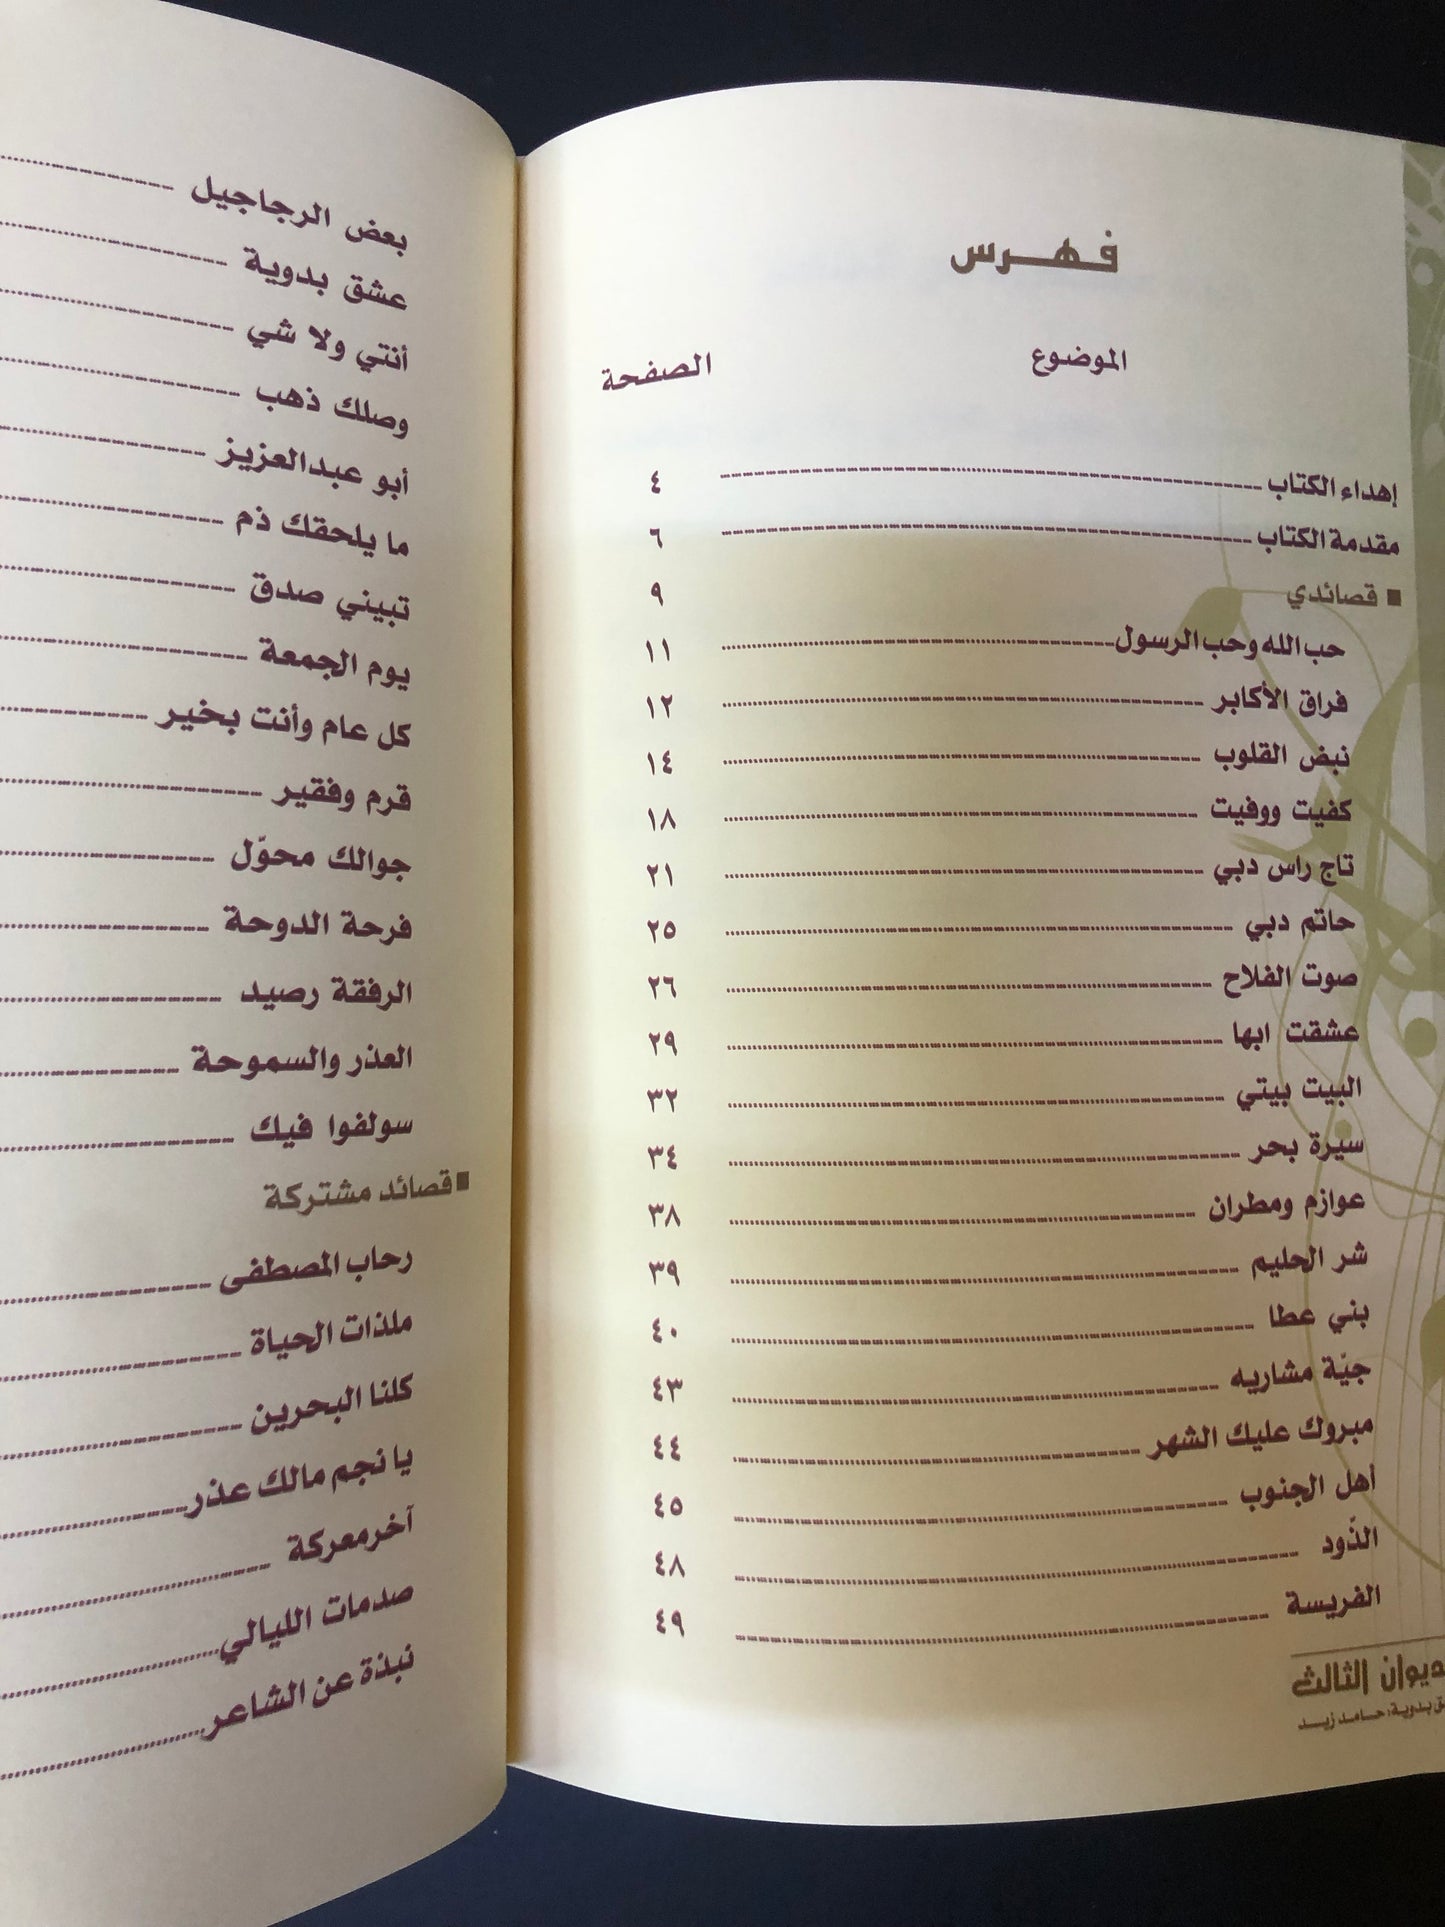 فهرس
الموضوع الصفحة
إهداء الكتاب ٤
مقدمة الكتاب ٦
■ قصائدي ٩
حب الله وحب الرسول ١١
فراق الأكابر ١٢
نبض القلوب ١٤
كفيت ووفيت ١٨
تاج راس دبي ٢١
حاتم دبي ٢٥
صوت الفلاح ٢٦
عشقت ابها ٢٩
البيت بيتي ٣٢
سيرة بحر ٣٤
عوازم ومطران ٣٨
شر الحليم ٣٩
بني عطا ٤٠
جيّة مشاريه ٤٣
مبروك عليك الشهر ٤٤
أهل الجنوب ٤٥
الذّود ٤٨
الفريسة ٤٩
ديوان الثالث
بدوية: حامد زيد
بعض الرجاجيل
عشق بدوية
أنتي ولا شي
وصلك ذهب
أبو عبدالعزيز
ما يلحقك ذم
تبيني صدق
يوم الجمعة
كل عام وأنت بخير
قرم وفقير
جوالك محوّل
فرحة الدوحة
الرفقة رصيد
العذر والسموحة
سولفوا فيك
■ قصائد مشتركة
رحاب المصطفى
ملذات الحياة
كلنا البحرين
يا نجم مالك عذر
آخر معركة
صدمات الليالي
نبذة عن الشاعر